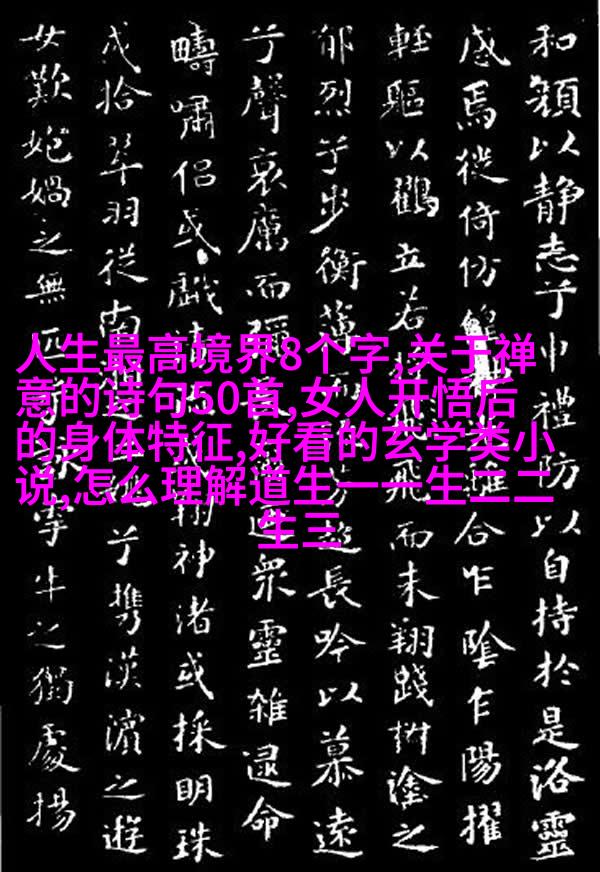 人生最高境界8个字,关于禅
意的诗句50首,女人开悟后
的身体特征,好看的玄学类小
说,怎么理解道生一一生二二
生三
和顏以静志兮申禮防以自持於是洛靈
感焉徙倚仿偟離合乍陰乍陽擢
輕軀以鶴立若飛而未翔踐椒塗之
郁烈兮步衡薄芳超長吟以慕遠
兮聲哀厲而彌衆靈雜遝命
疇嘯侶或戲清翔神渚或採明珠
或拾翠羽從南兮攜漢濱之遊
女歎匏媧之無匹兮詠牽牛之獨處揚